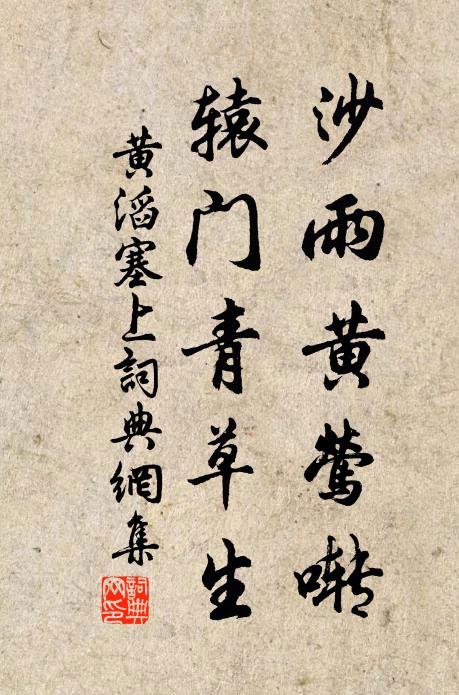 沙雨黄莺啭
辕门青草生
黄滔塞上詞典網集
詞典网印